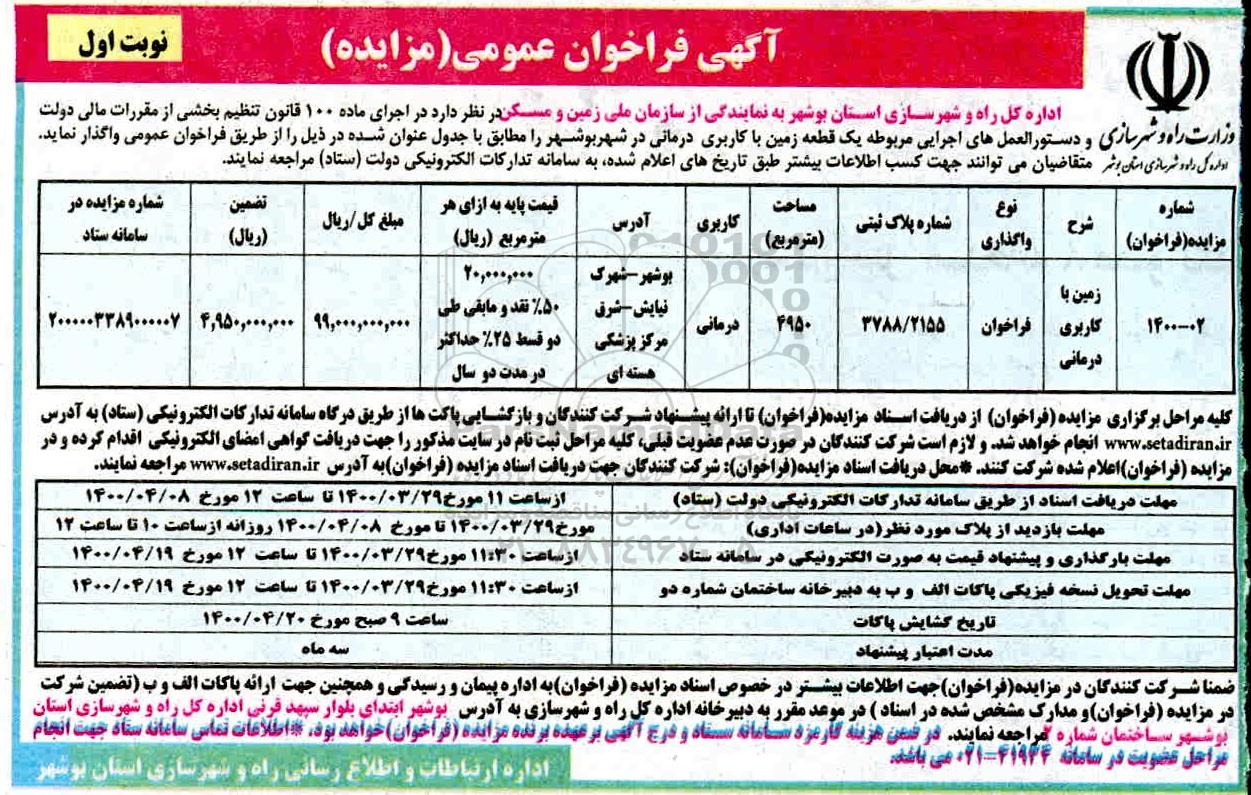 آگهی فراخوان عمومی(مزایده)
نوبت اول
وزارت راه و شهرسازی
اداره کل راه و شهرسازی استان بوشهر
اداره کل راه و شهرسـازی اسـتان بوشهر به نمایندگی از سازمان ملی زمین و مسـکن در نظر دارد در اجرای ماده ۱۰۰ قانون تنظیم بخشی از مقررات مالی دولت
و دستورالعمل های اجرایی مربوطه یک قطعه زمین با کاربری درمانی در شهر بوشهر را مطابق با جدول عنوان شده در ذیل را از طریق فراخوان عمومی واگذار نماید.
متقاضیان می توانند جهت کسب اطلاعات بیشتر طبق تاریخ های اعلام شده، به سامانه تدارکات الکترونیکی دولت (ستاد) مراجعه نمایند.
شماره مزایده(فراخوان) | شرح | نوع واگذاری | شماره پلاک ثبتی | مساحت (مترمربع) | کاربری | آدرس | قیمت پایه به ازای هر مترمربع (ریال) | مبلغ کل/ریال | تضمین (ریال) | شماره مزایده در سامانه ستاد
۱۴۰۰-۰۲ | زمین با کاربری درمانی | فراخوان | ۳۷۸۸/۲۱۵۵ | ۴۹۵۰ | درمانی | بوشهر-شهرک نیایش-شرق مرکز پزشکی هسته ای | ۲۰,۰۰۰,۰۰۰ ۵۰٪ نقد و مابقی طی دو قسط ۲۵٪ حداکثر در مدت دو سال | ۹۹,۰۰۰,۰۰۰,۰۰۰ | ۴,۹۵۰,۰۰۰,۰۰۰ | ۲۰۰۰۰۰۳۳۸۹۰۰۰۰۰۷
کلیه مراحل برگزاری مزایده (فراخوان) از دریافت اسـناد مزایده(فراخوان) تا ارائه پیشنهاد شـرکت کنندگان و بازگشایی پاکت ها از طریق درگاه سامانه تدارکات الکترونیکی (ستاد) به آدرس
www.setadiran.ir انجام خواهد شد. و لازم است شرکت کنندگان در صورت عدم عضویت قبلی، کلیه مراحل ثبت نام در سایت مذکور را جهت دریافت گواهی امضای الکترونیکی اقدام کرده و در
مزایده (فراخوان)اعلام شده شرکت کنند. *محل دریافت اسناد مزایده(فراخوان): شرکت کنندگان جهت دریافت اسناد مزایده (فراخوان)به آدرس www.setadiran.ir مراجعه نمایند.
مهلت دریافت اسناد از طریق سامانه تدارکات الکترونیکی دولت (ستاد) | ازساعت ۱۱ مورخ۱۴۰۰/۰۳/۲۹ تا ساعت ۱۲ مورخ ۱۴۰۰/۰۴/۰۸
مهلت بازدید از پلاک مورد نظر(در ساعات اداری) | مورخ۱۴۰۰/۰۳/۲۹ تا مورخ ۱۴۰۰/۰۴/۰۸ روزانه ازساعت ۱۰ تا ساعت ۱۲
مهلت بارگذاری و پیشنهاد قیمت به صورت الکترونیکی در سامانه ستاد | ازساعت ۱۱:۳۰ مورخ۱۴۰۰/۰۳/۲۹ تا ساعت ۱۲ مورخ ۱۴۰۰/۰۴/۱۹
مهلت تحویل نسخه فیزیکی پاکات الف و ب به دبیرخانه ساختمان شماره دو | ازساعت ۱۱:۳۰ مورخ۱۴۰۰/۰۳/۲۹ تا ساعت ۱۲ مورخ ۱۴۰۰/۰۴/۱۹
تاریخ گشایش پاکات | ساعت ۹ صبح مورخ ۱۴۰۰/۰۴/۲۰
مدت اعتبار پیشنهاد | سه ماه
ضمنا شـرکت کنندگان در مزایده(فراخوان)جهت اطلاعات بیشتر در خصوص اسناد مزایده (فراخوان)به اداره پیمان و رسیدگی و همچنین جهت ارائه پاکات الف و ب (تضمین شرکت
در مزایده (فراخوان)و مدارک مشخص شده در اسناد ) در موعد مقرر به دبیرخانه اداره کل راه و شهرسازی به آدرس بوشهر ابتدای بلوار سپهد قرنی اداره کل راه و شهرسازی استان
بوشهر سـاختمان شماره ۲ مراجعه نمایند. در ضمن هزینه کارمزد سـامانه سـتاد و درج آگهی بر عهده برنده مزایده (فراخوان)خواهد بود. *اطلاعات تماس سامانه ستاد جهت انجام
مراحل عضویت در سامانه ۴۱۹۳۴-۰۲۱ می باشد.
اداره ارتباطات و اطلاع رسانی راه و شهرسازی استان بوشهر